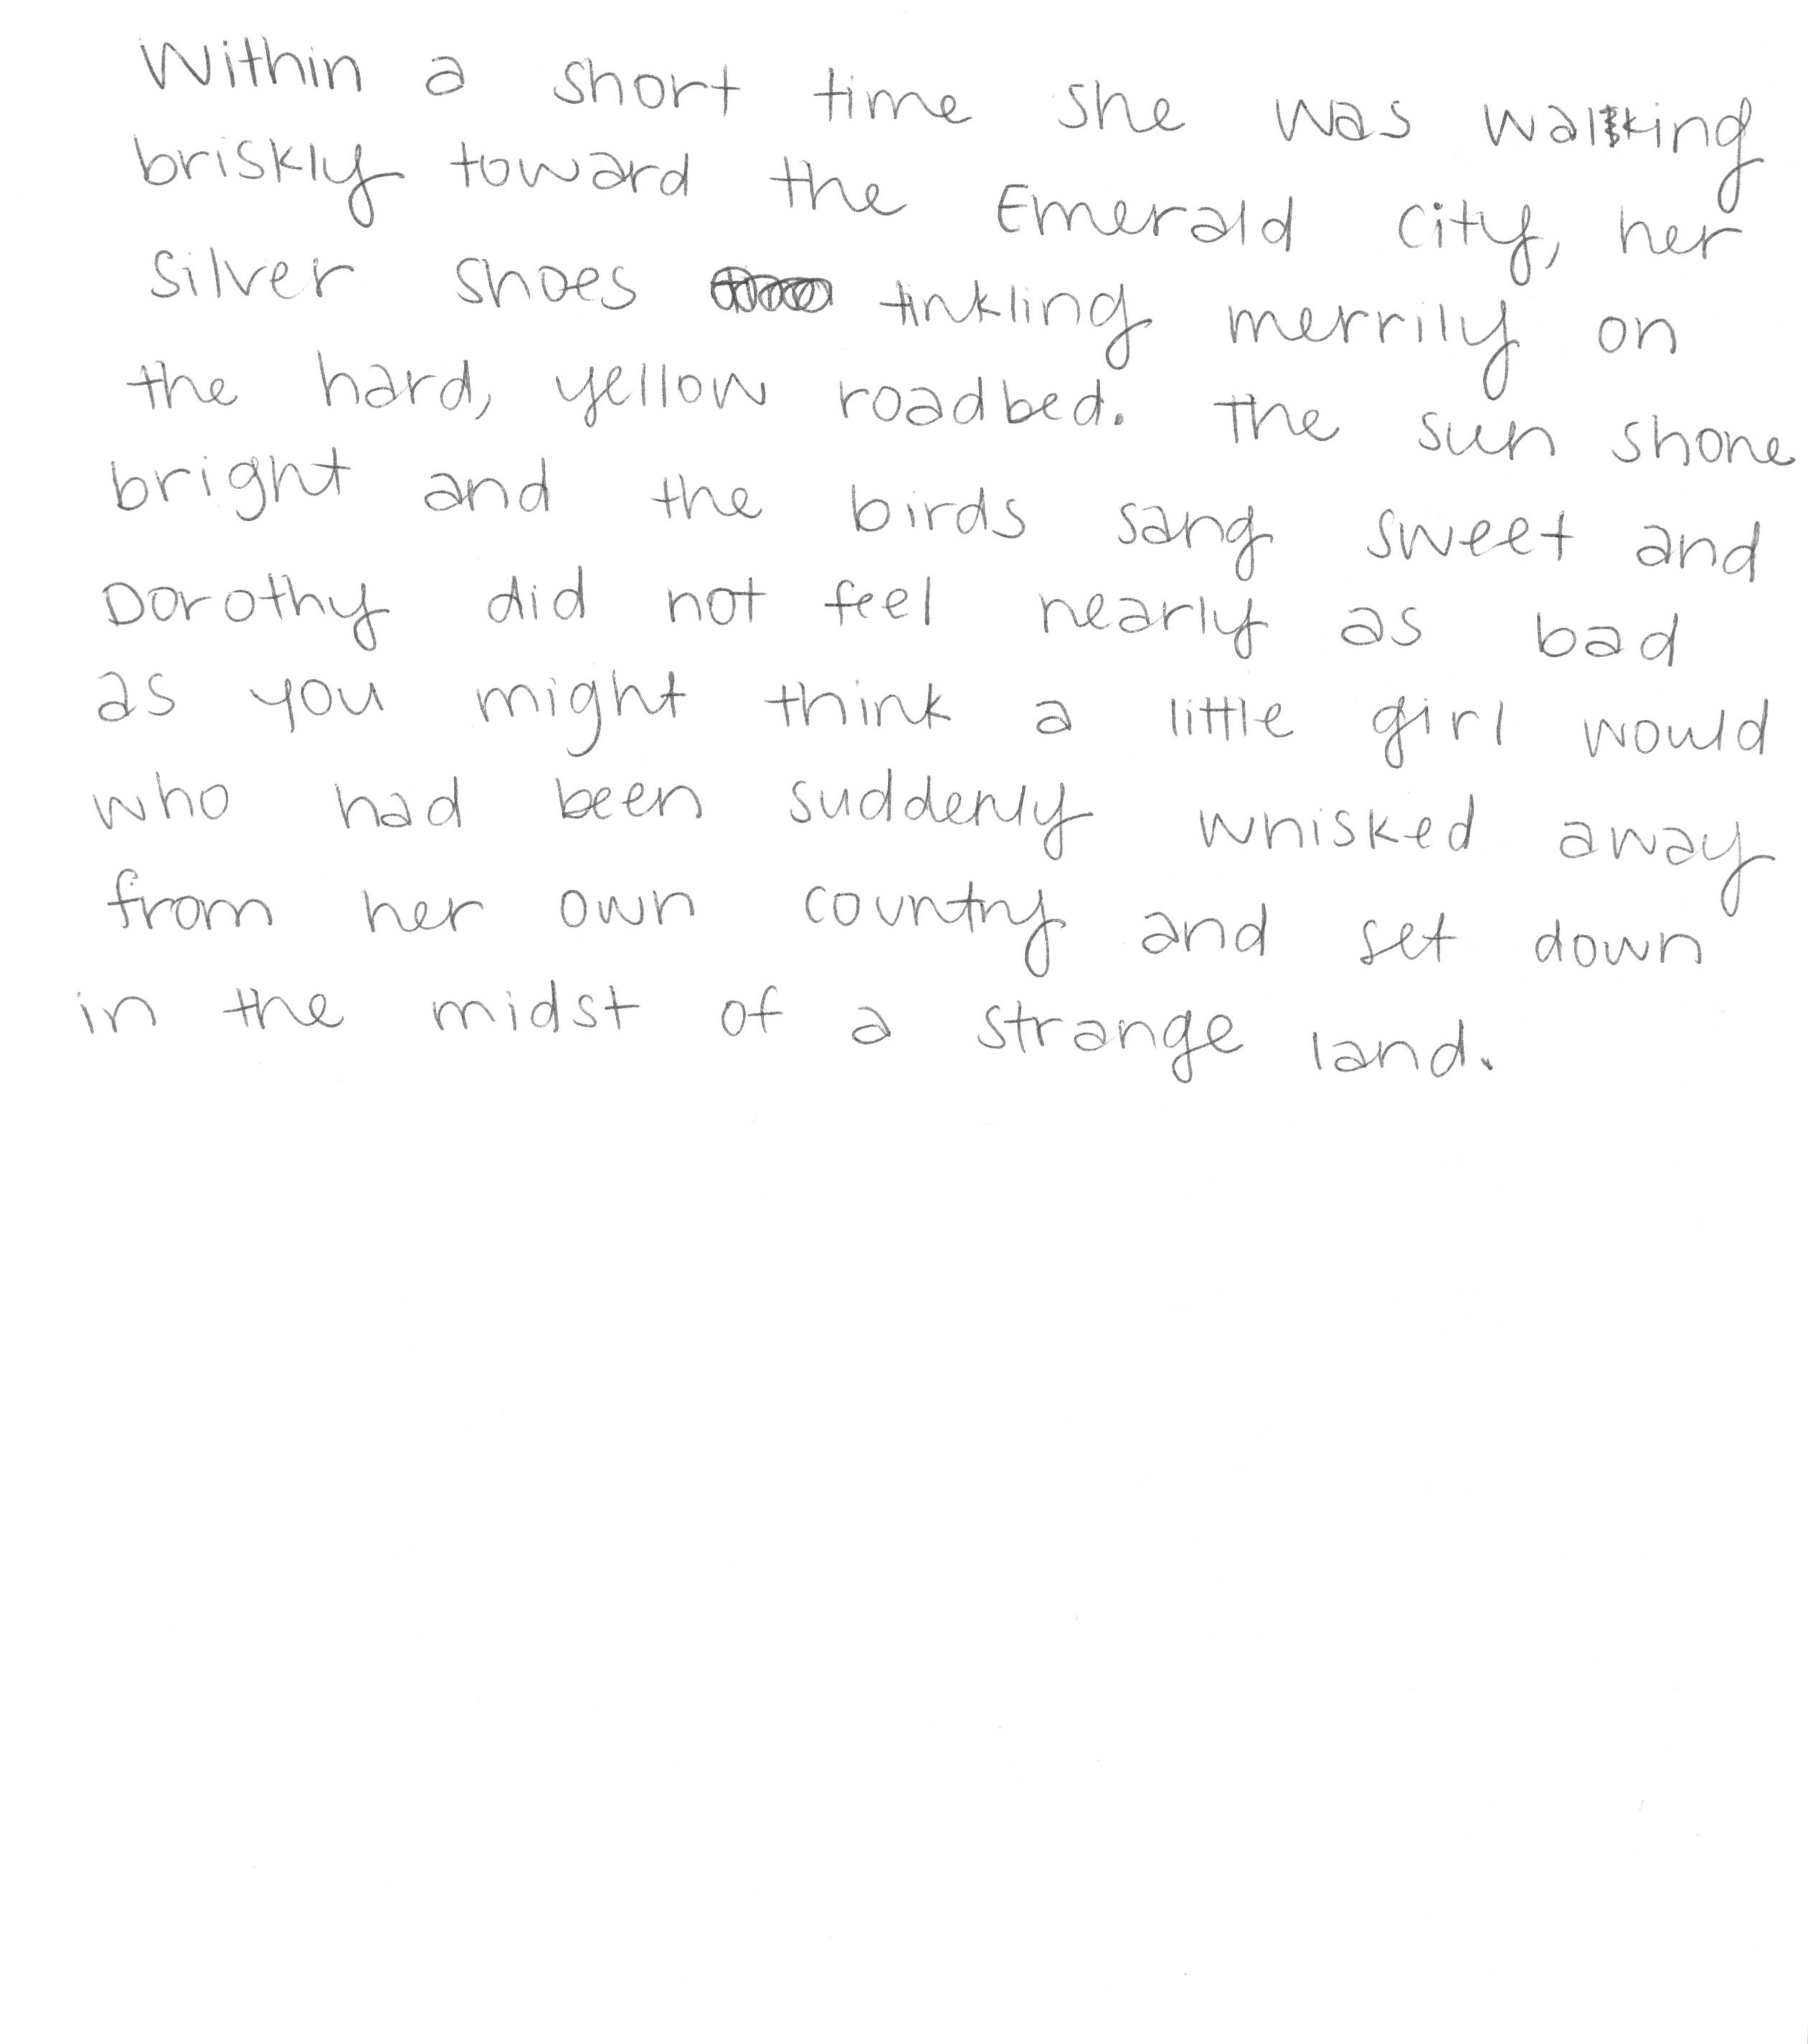 Within a short time she was walking
briskly toward the Emerald City, her
silver shoes tinkling merrily on
the hard, yellow roadbed. The sun shone
bright and the birds sang sweet and
Dorothy did not feel nearly as bad
as you might think a little girl would
who had been suddenly whisked away
from her own country and set down
in the midst of a strange land.